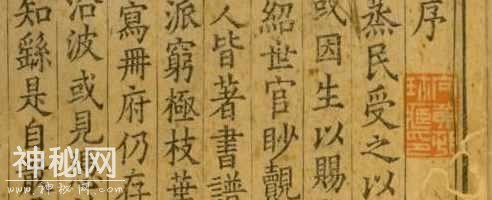 序
蒸民受之以
或因生以賜
紹世官眇覿
人皆著書譜
派窮極枝葉
寫冊府仍存
沿波或見
知繇是自
神秘网
WWW.神秘网.COM